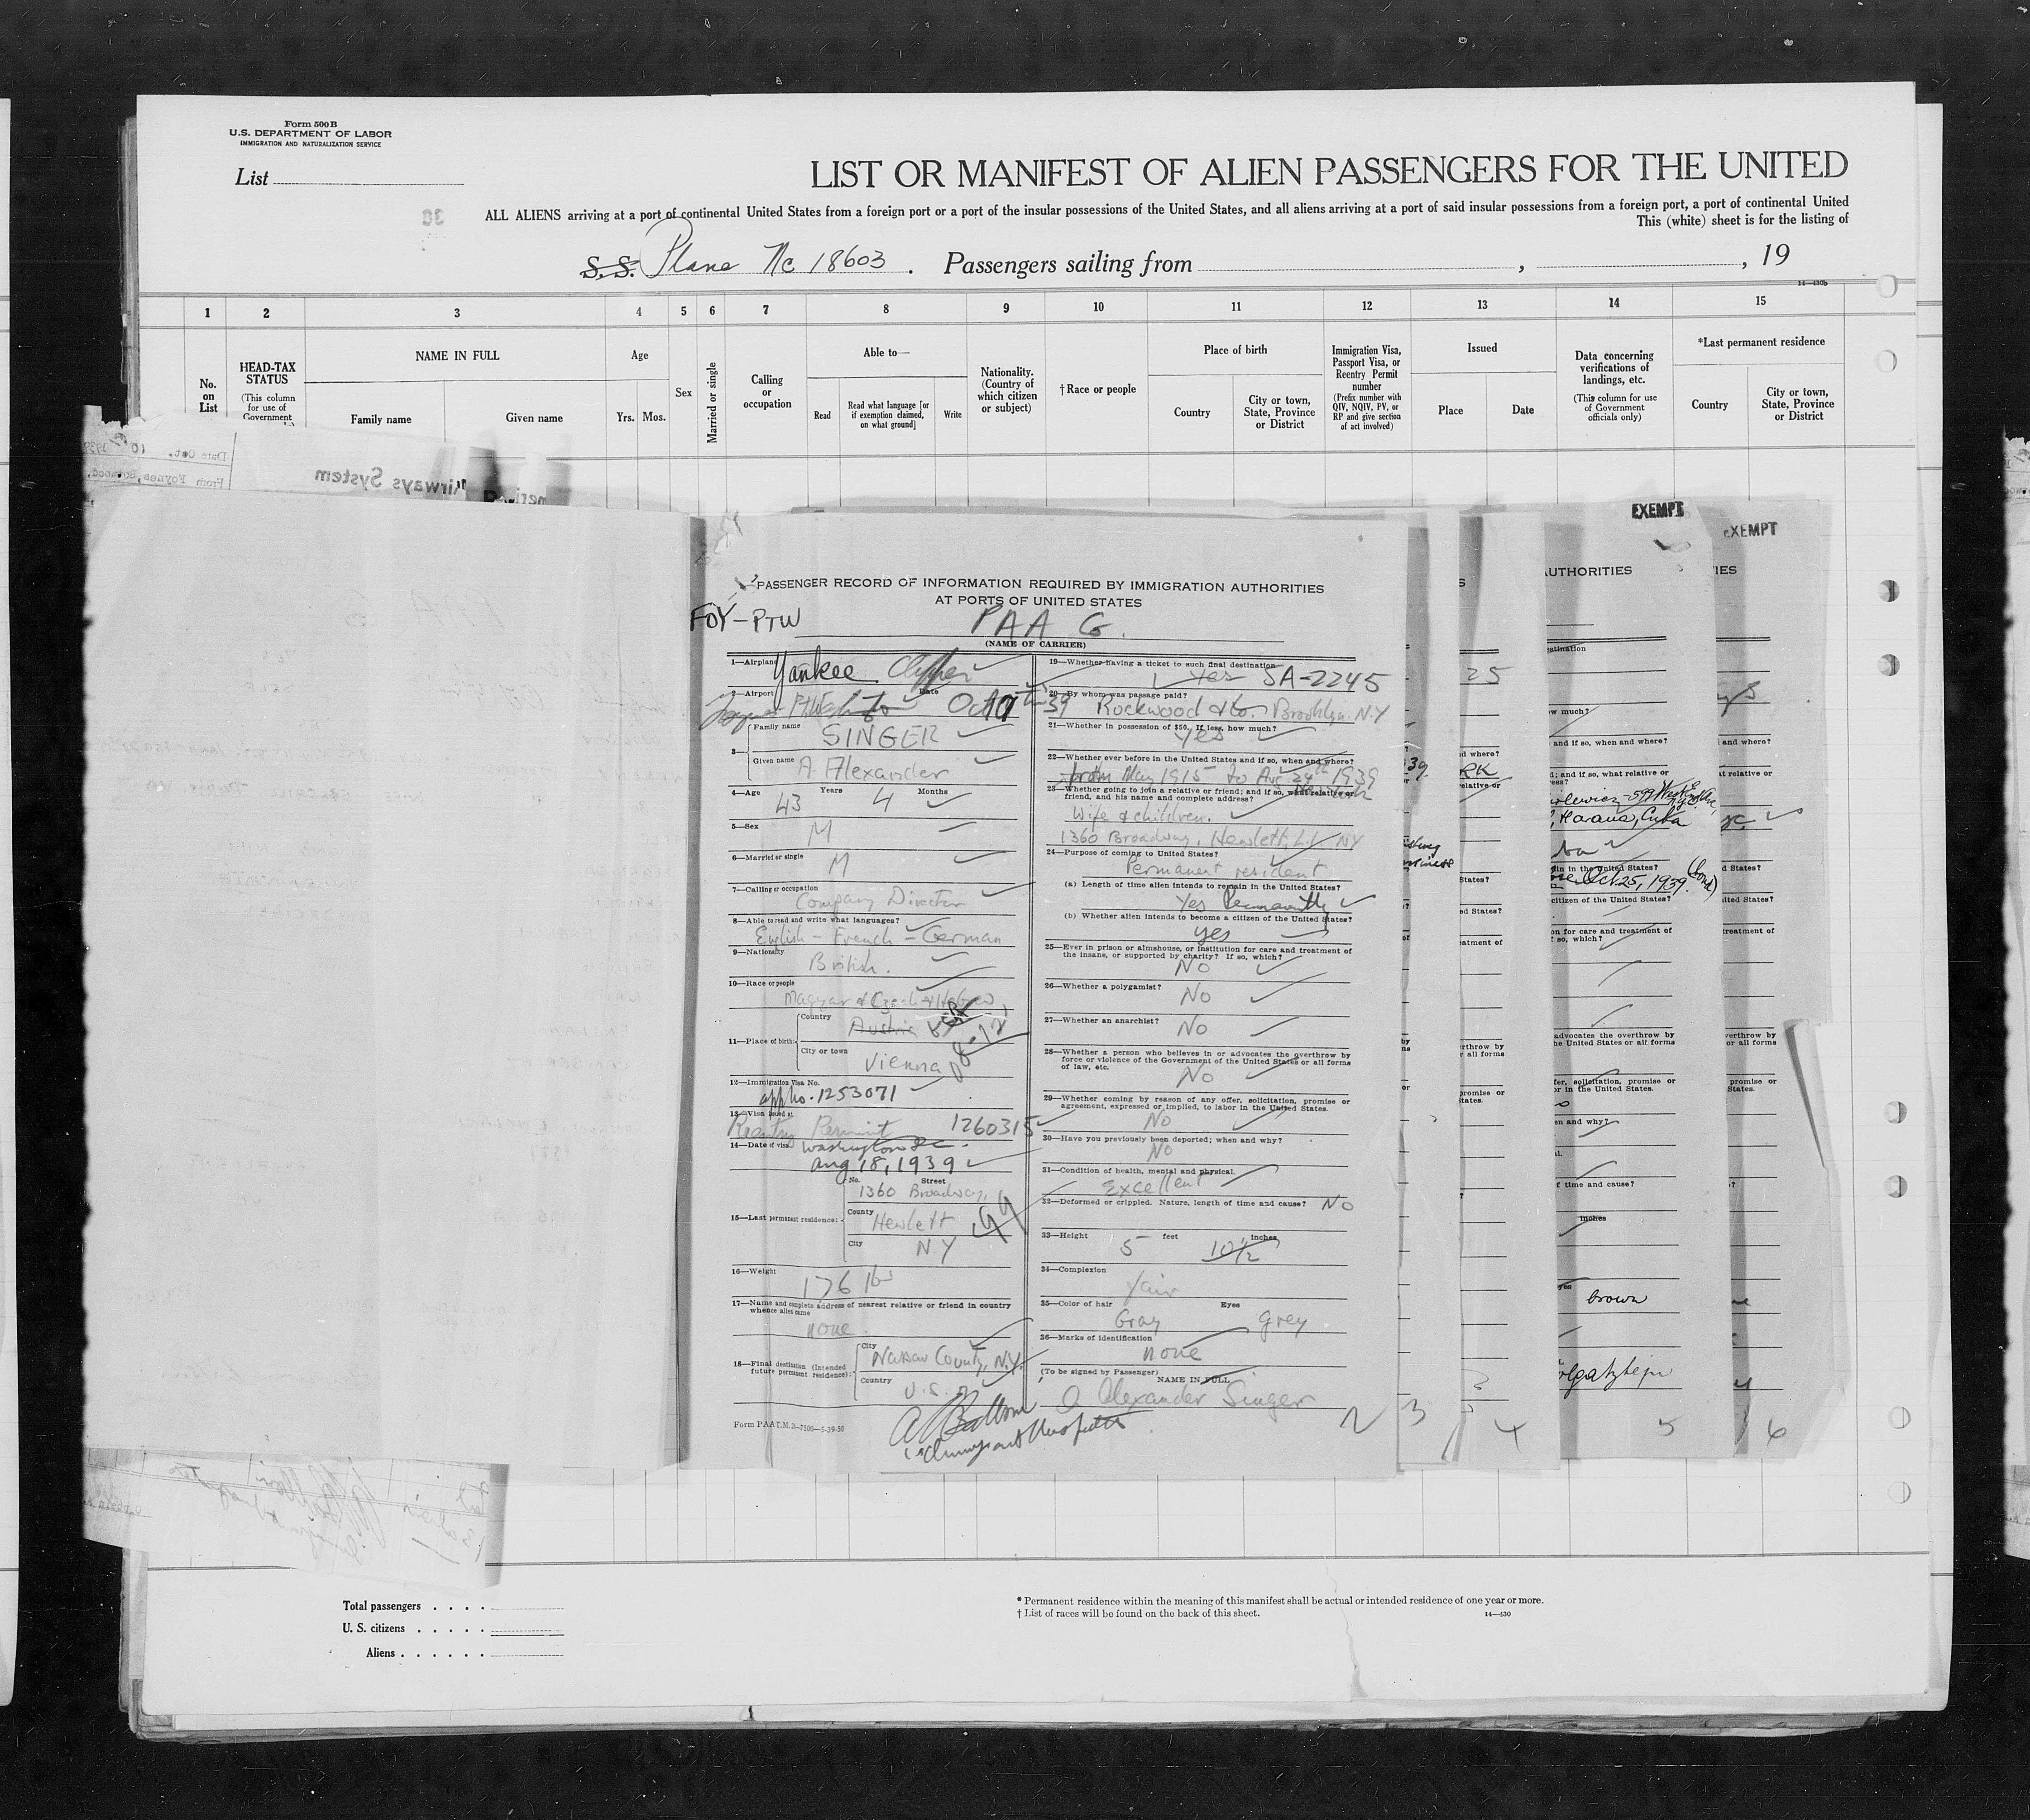 Form 500 B
U.S. DEPARTMENT OF LABOR
IMMIGRATION AND NATURALIZATION SERVICE
List
LIST OR MANIFEST OF ALIEN PASSENGERS FOR THE UNITED
ALL ALIENS arriving at a port of continental United States from a foreign port or a port of the insular possessions of the United States, and all aliens arriving at a port of said insular possessions from a foreign port, a port of continental United
This (white) sheet is for the listing of
S.S. Plane Nc 18603. Passengers sailing from , , 19
14—430b
1 2 3 4 5 6 7 8 9 10 11 12 13 14 15
No. on List
HEAD-TAX STATUS
(This column for use of Government
NAME IN FULL
Family name Given name
Age
Yrs. Mos.
Sex
Married or single
Calling or occupation
Able to—
Read Read what language [or if exemption claimed, on what ground] Write
Nationality. (Country of which citizen or subject)
†Race or people
Place of birth
Country City or town, State, Province or District
Immigration Visa, Passport Visa, or Reentry Permit number
(Prefix number with QIV, NQIV, PV, or RP and give section of act involved)
Issued
Place Date
Data concerning verifications of landings, etc.
(This column for use of Government officials only)
*Last permanent residence
Country City or town, State, Province or District
Date Oct. 10 1939
From Foynes, Botwood,
Airways System
EXEMPT
EXEMPT
PASSENGER RECORD OF INFORMATION REQUIRED BY IMMIGRATION AUTHORITIES
AT PORTS OF UNITED STATES
FOY-PTW PAA G.
(NAME OF CARRIER)
1—Airplane Yankee Clipper
2—Airport Pt Washington Date Oct
3— Family name SINGER
Given name A. Alexander
4—Age 43 Years 4 Months
5—Sex M
6—Married or single M
7—Calling or occupation
Company Director
8—Able to read and write what languages?
English - French - German
9—Nationality
British.
10—Race or people
Magyar & Czech & Hebrew
11—Place of birth: Country Austria
City or town Vienna
12—Immigration Visa No.
app no. 1253071
13—Visa issued at
Reentry Permit 1260315
14—Date of visa Washington DC
Aug 18, 1939
15—Last permanent residence: No. Street
1360 Broadway,
County Hewlett
City N.Y
16—Weight
176 lbs
17—Name and complete address of nearest relative or friend in country whence alien came
none
18—Final destination (Intended future permanent residence): City Nassau County, N.Y.
Country U.S.A
Form PAAT.M.
19—Whether having a ticket to such final destination
Yes SA-2245
20—By whom was passage paid?
Rockwood & Co. Brooklyn. N.Y
21—Whether in possession of $50. If less, how much?
Yes
22—Whether ever before in the United States and if so, when and where?
from May 1915 to Aug 24th 1939
23—Whether going to join a relative or friend; and if so, what relative or friend, and his name and complete address?
Wife & children.
1360 Broadway, Hewlett, L.I. NY
24—Purpose of coming to United States?
Permanent resident
(a) Length of time alien intends to remain in the United States?
Yes Permanently
(b) Whether alien intends to become a citizen of the United States?
yes
25—Ever in prison or almshouse, or institution for care and treatment of the insane, or supported by charity? If so, which?
No
26—Whether a polygamist?
No
27—Whether an anarchist?
No
28—Whether a person who believes in or advocates the overthrow by force or violence of the Government of the United States or all forms of law, etc.
No
29—Whether coming by reason of any offer, solicitation, promise or agreement, expressed or implied, to labor in the United States.
No
30—Have you previously been deported; when and why?
No
31—Condition of health, mental and physical.
Excellent
32—Deformed or crippled. Nature, length of time and cause? No
33—Height 5 feet 10½ inches
34—Complexion
Fair
35—Color of hair Eyes
Gray Grey
36—Marks of identification
none
(To be signed by Passenger)
NAME IN FULL
A Alexander Singer
2 3 4 5 6
AUTHORITIES
and if so, when and where?
Havana, Cuba
Oct 25, 1939.
brown
Total passengers . . . .
U. S. citizens . . . . .
Aliens . . . . . .
* Permanent residence within the meaning of this manifest shall be actual or intended residence of one year or more.
† List of races will be found on the back of this sheet. 14—430